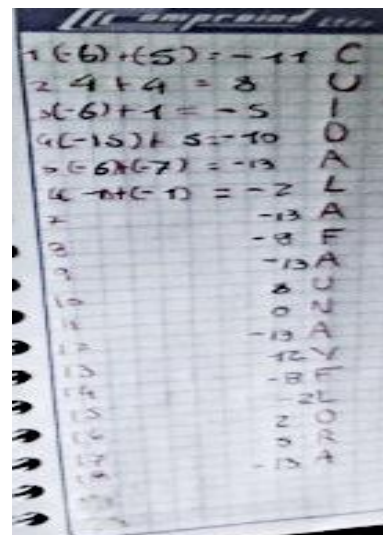 1 (-6)+(5)=-11 C
2 4+4=8 U
3(-6)+1=-5 I
4(-15)+5=-10 D
5(-6)+(-7)=-13 A
-1+(-1)=-2 L
7 -13 A
8 -8 F
9 -13 A
10 8 U
11 0 N
12 -13 A
13 -12 V
14 -8 F
15 -2 L
16 2 O
17 9 R
-13 A